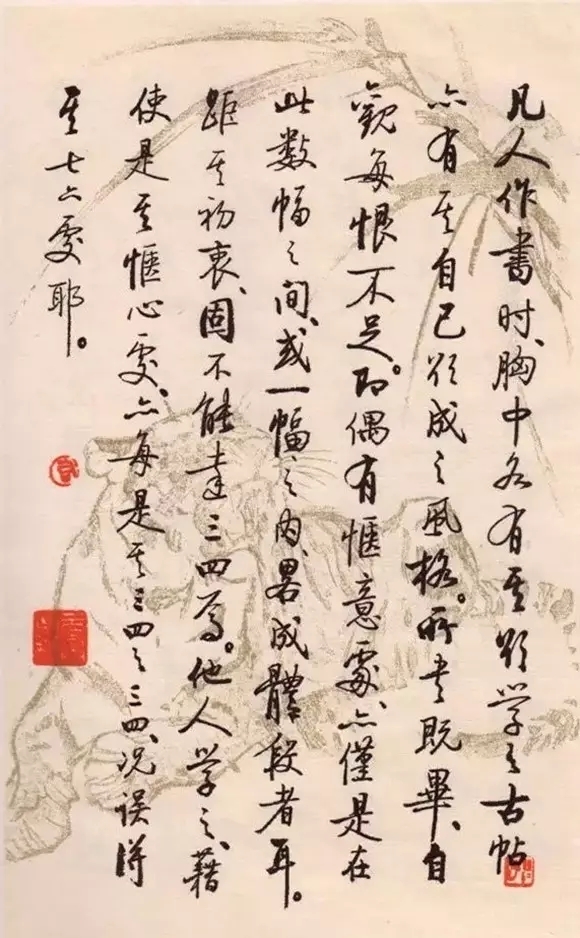 凡人作書时、胸中各有其欲学之古帖
亦有其自己欲成之風格。所书既畢、自
觀每恨不足。即偶有惬意處、亦僅是在
此数幅之间、或一幅之内、畧成體段者耳。
距其初衷、固不能達三四焉。他人学之、藉
使是其惬心处、亦每是其三四之三四、况误得
其七六处耶。